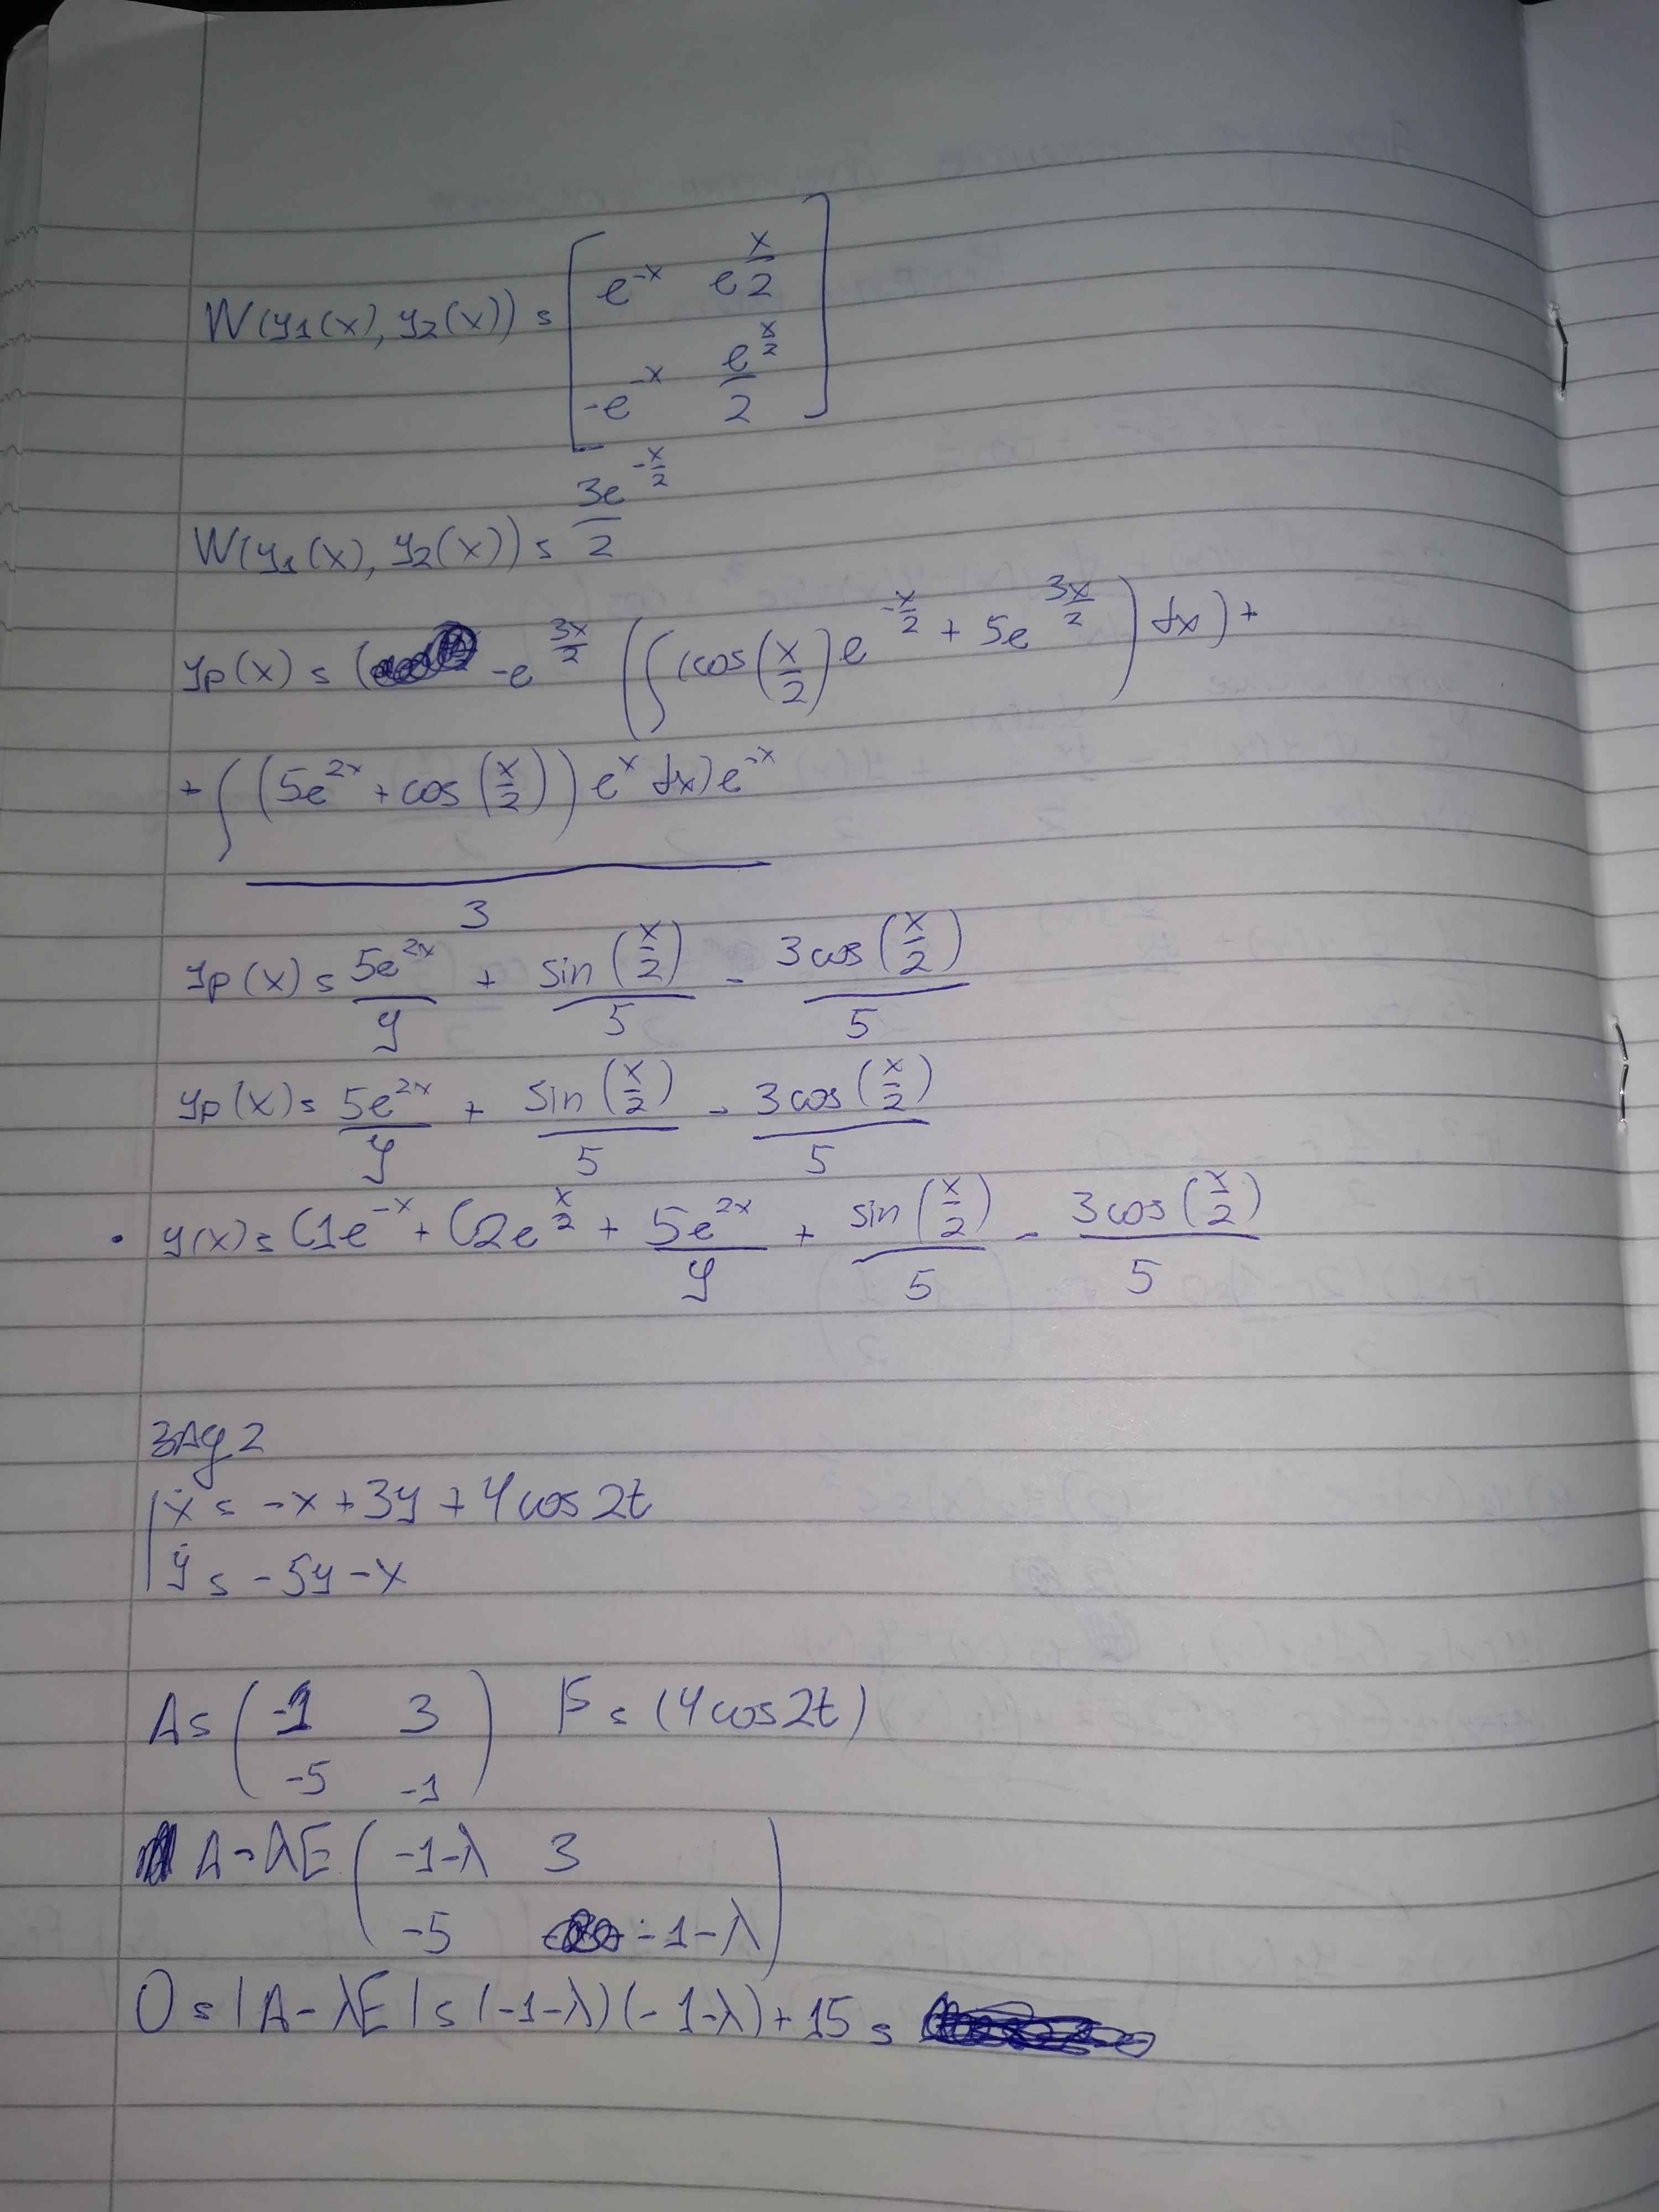 W(y1(x), y2(x)) = [ e^{-x} e^{x/2}
-e^{-x} e^{x/2}/2 ]
W(y1(x), y2(x)) = 3e^{-x/2}/2
yp(x) = ( -e^{3x/2} (∫(cos(x/2) e^{-x/2} + 5e^{3x/2}) dx) +
+ ∫ ((5e^{2x} + cos(x/2)) e^x dx) e^{-x}
3
yp(x) = 5e^{2x}/9 + sin(x/2)/5 - 3cos(x/2)/5
yp(x) = 5e^{2x}/9 + sin(x/2)/5 - 3cos(x/2)/5
• y(x) = C1e^{-x} + C2e^{x/2} + 5e^{2x}/9 + sin(x/2)/5 - 3cos(x/2)/5
ЗАД 2
| ẋ = -x + 3y + 4cos2t
| ẏ = -5y - x
A = ( -1 3
-5 -1 ) F = (4cos2t)
A - λE ( -1-λ 3
-5 -1-λ )
0 = |A - λE| = (-1-λ)(-1-λ) + 15 =